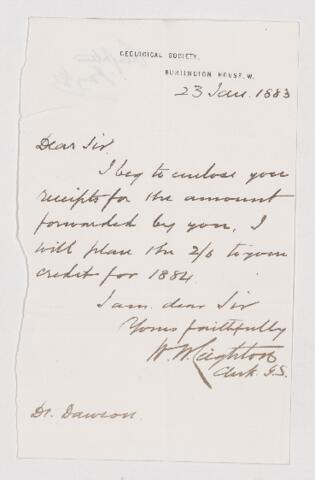 GEOLOGICAL SOCIETY,
BURLINGTON HOUSE, W.
23 Jan. 1883
Dear Sir
I beg to enclose you
receipts for the amount
forwarded by you, I
will place the 2/6 to your
credit for 1884
I am dear Sir
Yours faithfully
W. W. Leighton
Clerk. G.S.
Dr. Dawson.